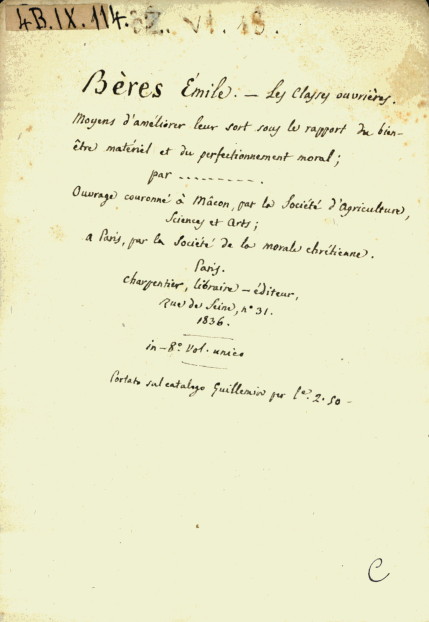 4B.IX.114. 62. VI. 13.
Bères Émile. — Les Classes ouvrières.
Moyens d'améliorer leur sort sous le rapport du bien-
être matériel et du perfectionnement moral;
par ---------.
Ouvrage couronné à Mâcon, par la Société d'Agriculture,
Sciences et Arts;
a Paris, par la Société de la morale chrétienne.
Paris.
Charpentier, libraire - éditeur,
rue de Seine, n° 31.
1836.
in-8° Vol. unico
Portato sul catalogo Guillemin per 2.50 -
C